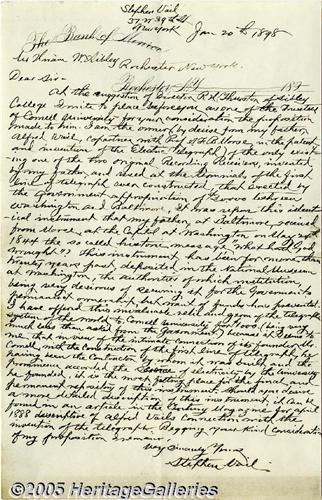 Stephen Vail
New York
Jan. 20th 1898
The Bank of
Hiram W. Sibley
Rochester New York.
Dear Sir—
Rochester, N.Y. 189
At the suggestion of Director R. H. Thurston of Sibley
College I write to place before you as one of the Trustees
of Cornell University for your consideration the proposition
made to him. I am the owner by devise from my father
Alfred Vail, copartner with Prof. S. F. B. Morse in the patent
and invention of the Electro Telegraph of the only exist-
ing one of the two original Recording Receivers, invented
by my father, and used at the terminals of the first
line of telegraph ever constructed, that erected by
the Government appropriation of between
Washington and Baltimore. It was upon this identi-
cal instrument that my father, at Baltimore, received
from Morse, at the Capitol at Washington on May 24th
1844 the so called historic message "What hath God
wrought?" This instrument has been for more than
twenty years past deposited in the National Museum
at Washington, the authorities of which institution,
being very desirous of securing it for the Government's
permanent ownership, but want of funds has prevented.
I have offered this invaluable relic and germ of the telegraph
system of the world to Cornell University for (being very
much less than asked from the Government) because it seems to
me that in view of the intimate connection of its founder Mr.
Cornell, with the construction of the first line of telegraph, he
having been the Contractor by whom it was built and the
prominence accorded the Science of electricity by the University
he founded, it is the most fitting place for the final and
permanent repository of this instrument. Should you desire
a more detailed description of this instrument, it can be
found in an article in the Century Magazine for April
1888 descriptive of Alfred Vail's connection with the
invention of the telegraph. Begging your kind consideration
of my proposition I remain
Very Sincerely Yours
Stephen Vail
©2005 HeritageGalleries